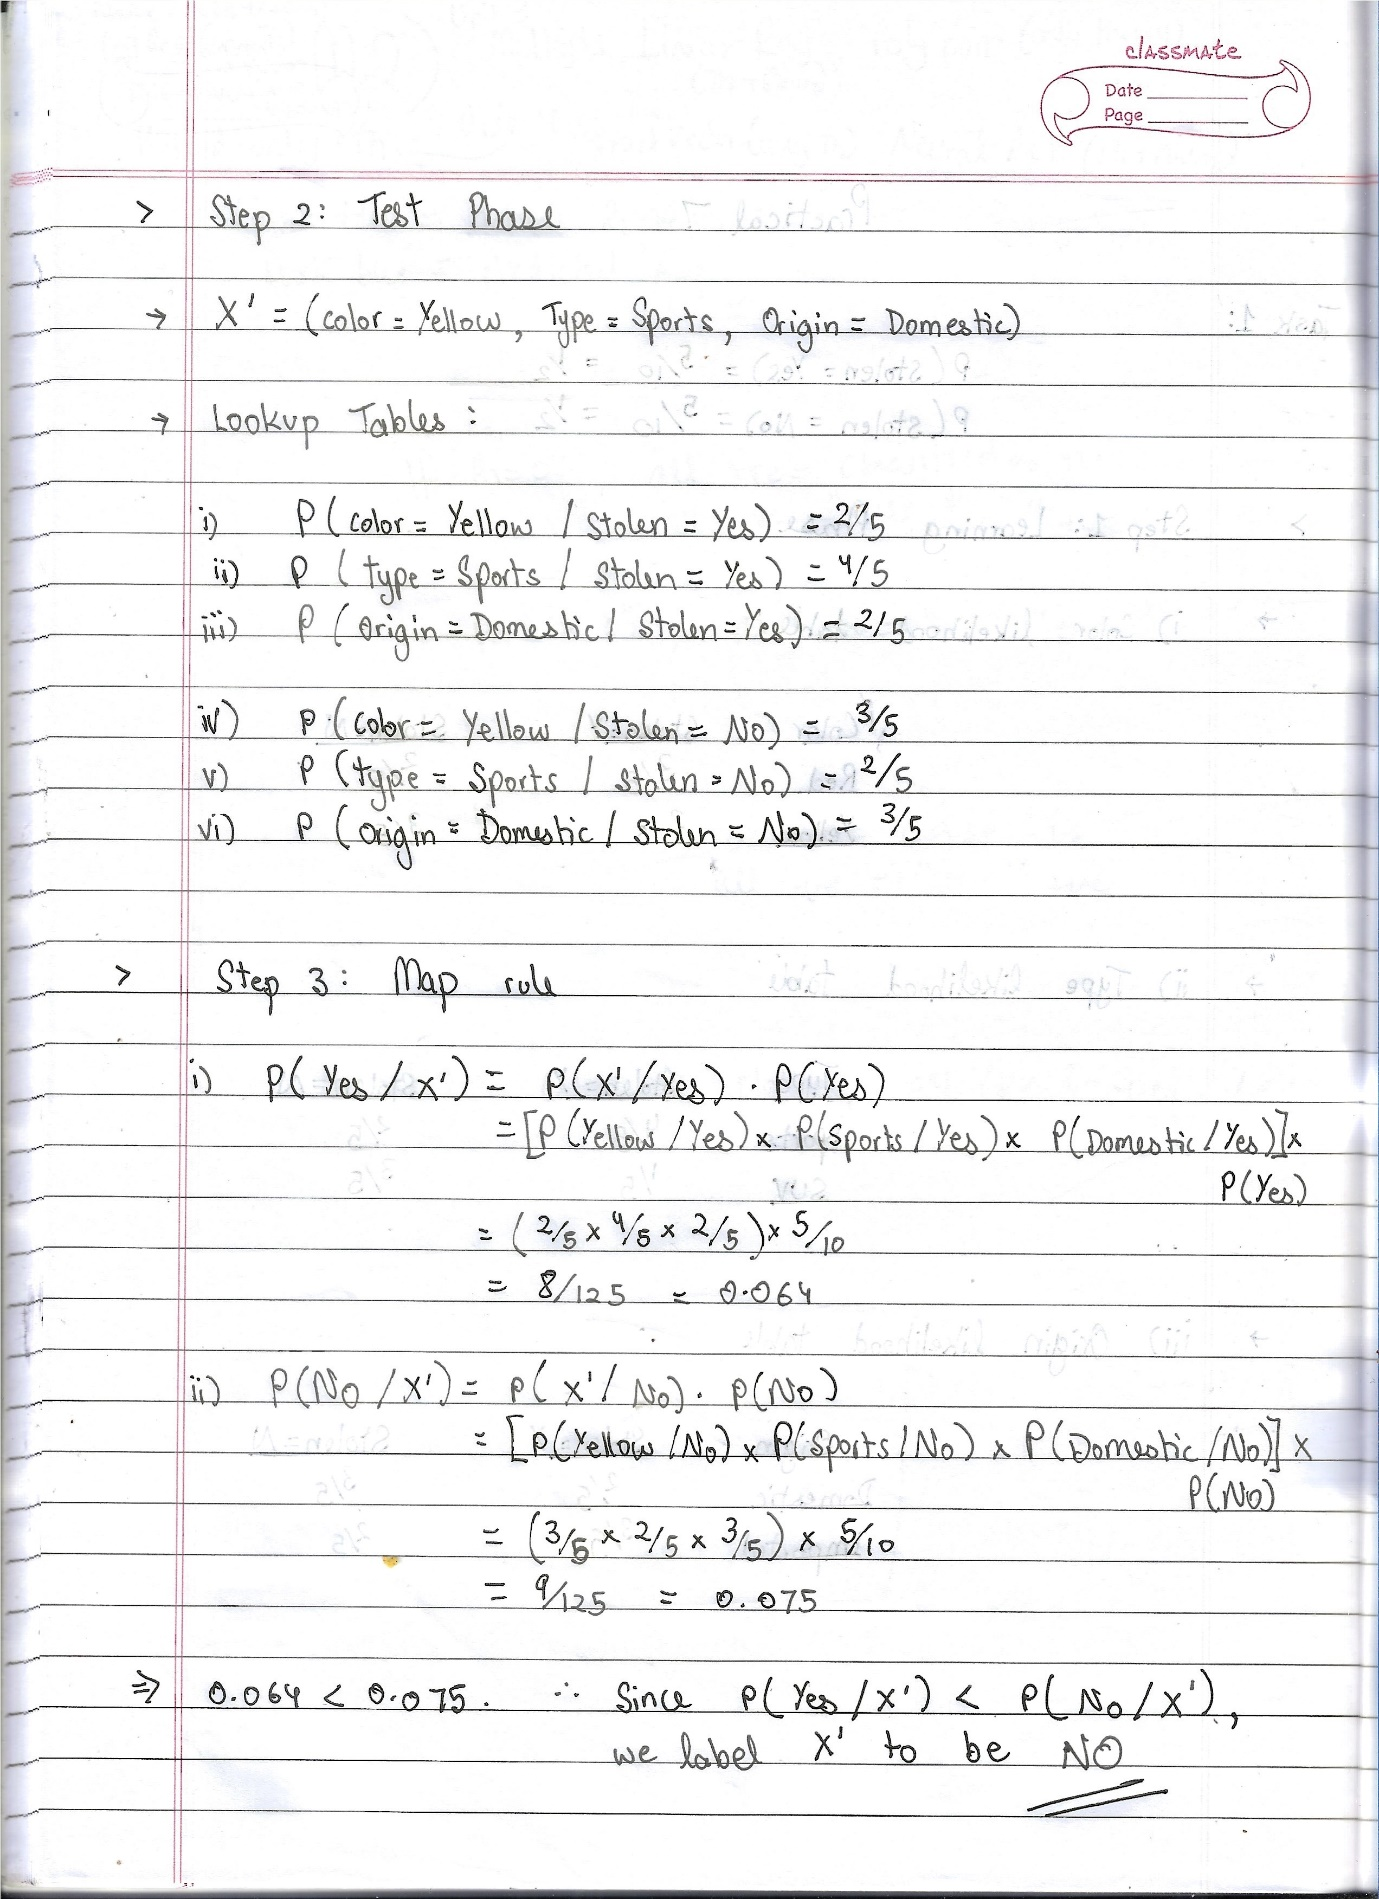 classmate
Date
Page
> Step 2: Test Phase
→ X' = (color = Yellow, Type = Sports, Origin = Domestic)
→ Lookup Tables :
i) P(color = Yellow / Stolen = Yes) = 2/5
ii) P (type = Sports / Stolen = Yes) = 4/5
iii) P (origin = Domestic / Stolen = Yes) = 2/5
iv) P (color = Yellow / Stolen = No) = 3/5
v) P (type = Sports / Stolen = No) = 2/5
vi) P (origin = Domestic / Stolen = No) = 3/5
> Step 3: Map rule
i) P(Yes / x') = P(X' / Yes) . P(Yes)
= [P(Yellow / Yes) x P(Sports / Yes) x P(Domestic / Yes)] x
P(Yes)
= (2/5 x 4/5 x 2/5) x 5/10
= 8/125 = 0.064
ii) P(No / X') = P(X' / No) . P(No)
= [P(Yellow / No) x P(Sports / No) x P(Domestic / No)] x
P(No)
= (3/5 x 2/5 x 3/5) x 5/10
= 9/125 = 0.075
⇒ 0.064 < 0.075. ∴ Since P(Yes / X') < P(No / X'),
we label X' to be NO